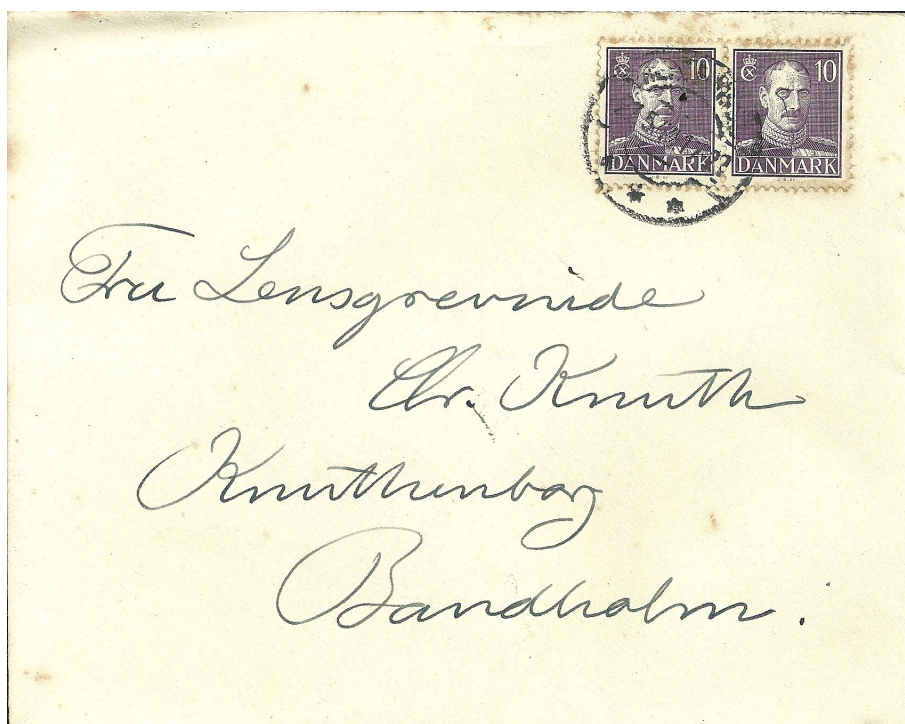 10 10
DANMARK DANMARK
Fru Lensgrevinde
Chr. Knuth
Knuthenborg
Bandholm.